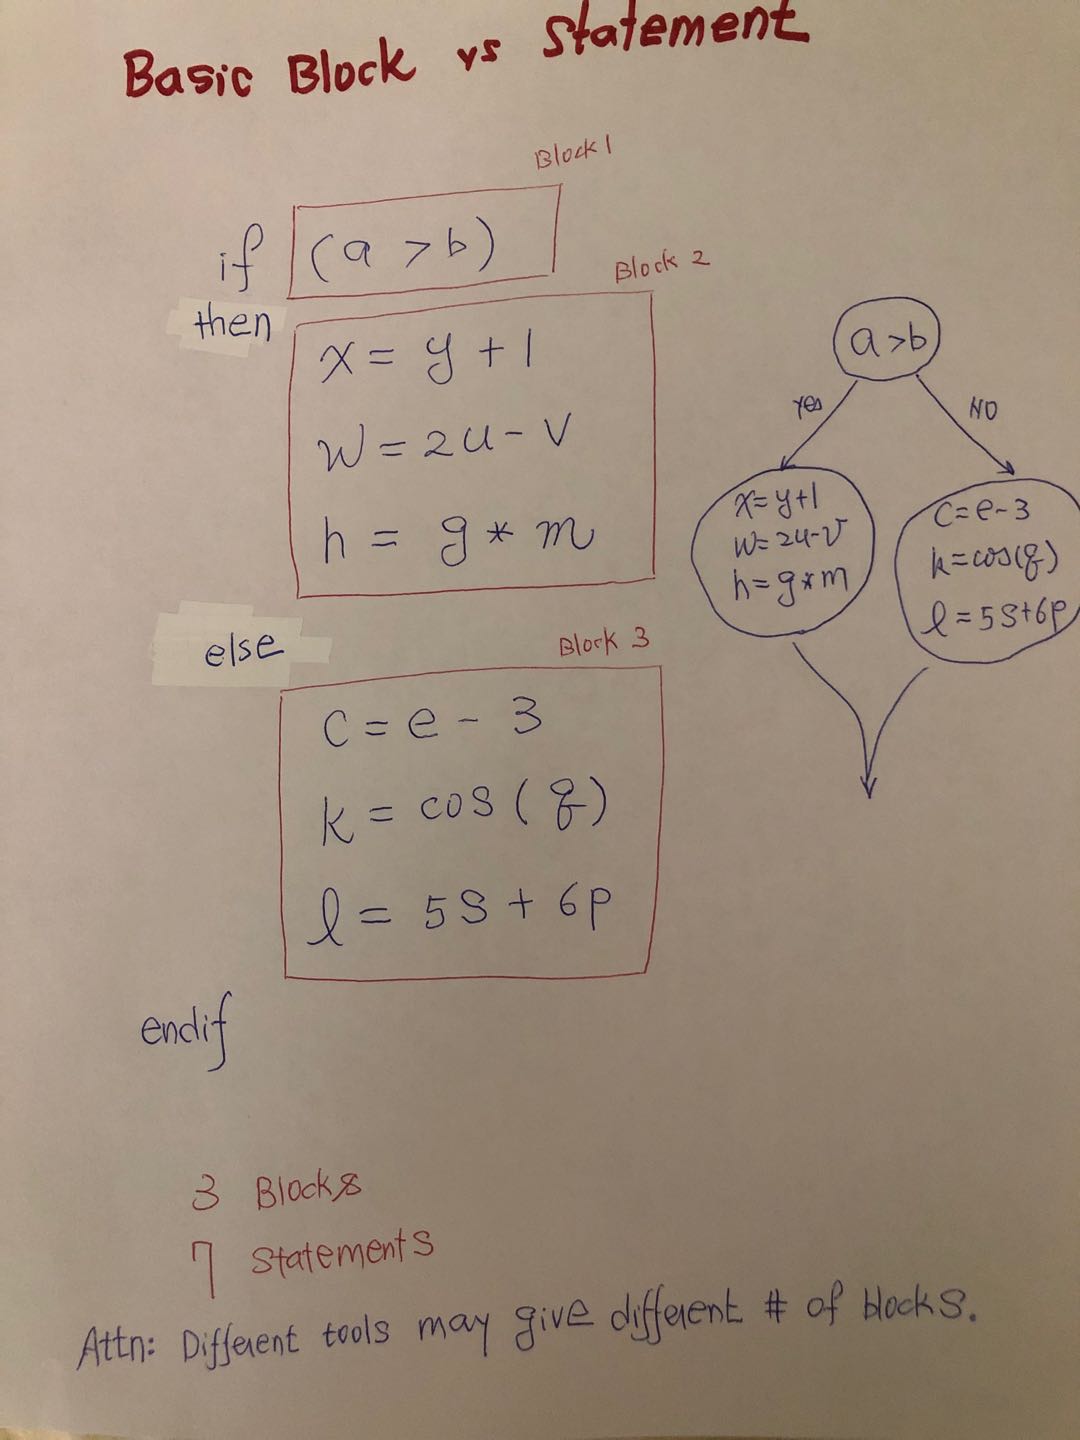 Basic Block vs Statement
Block 1
if (a > b)
Block 2
then
x = y + 1
w = 2u - v
h = g * m
else
Block 3
c = e - 3
k = cos(q)
l = 5s + 6p
endif
a>b
Yes
NO
x=y+1
w=2u-v
h=g*m
c=e-3
k=cos(q)
l=5s+6p
3 Blocks
7 Statements
Attn: Different tools may give different # of blocks.